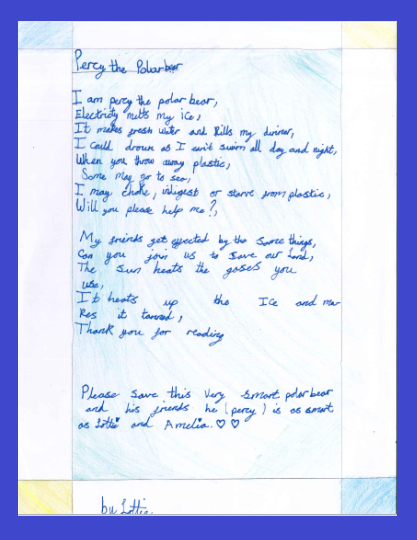 Percy the Polar bear
I am percy the polar bear,
Electricity melts my ice,
It makes fresh water and kills my dinner,
I could drown as I can't swim all day and night,
When you throw away plastic,
Some may go to sea,
I may choke, indigest or starve from plastic,
Will you please help me?,
My friends get affected by the same things,
Can you join us to save our land,
The sun heats the gases you
use,
It heats up the Ice and ma
kes it
Thank you for reading
Please save this very smart polar bear
and his friends he (percy) is as smart
as Lottie and Amelia. ♡ ♡
by Lottie.